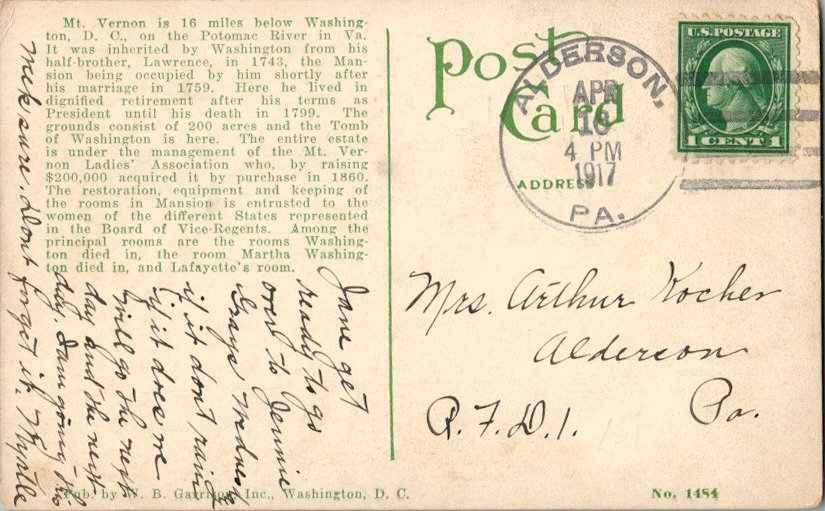 Mt. Vernon is 16 miles below Washing-
ton, D. C., on the Potomac River in Va.
It was inherited by Washington from his
half-brother, Lawrence, in 1743, the Man-
sion being occupied by him shortly after
his marriage in 1759. Here he lived in
dignified retirement after his terms as
President until his death in 1799. The
grounds consist of 200 acres and the Tomb
of Washington is here. The entire estate
is under the management of the Mt. Ver-
non Ladies' Association who, by raising
$200,000 acquired it by purchase in 1860.
The restoration, equipment and keeping of
the rooms in Mansion is entrusted to the
women of the different States represented
in the Board of Vice-Regents. Among the
principal rooms are the rooms Washing-
ton died in, the room Martha Washington
ton died in, and Lafayette's room.
Jane get
ready to go
over to Jennie
Grays Wednesday
if it dont rain &
if it does we
will go the next
day and the next
day. I am going this
week sure. Dont forget it. Myrtle
Post
Card
ADDRESS
ALDERSON,
APR
18
4 PM
1917
PA.
U.S. POSTAGE
1 CENT 1
Mrs. Arthur Kocher
Alderson
R.F.D.1. Pa.
Pub. by W. B. Garrison Inc., Washington, D. C.
No. 1484